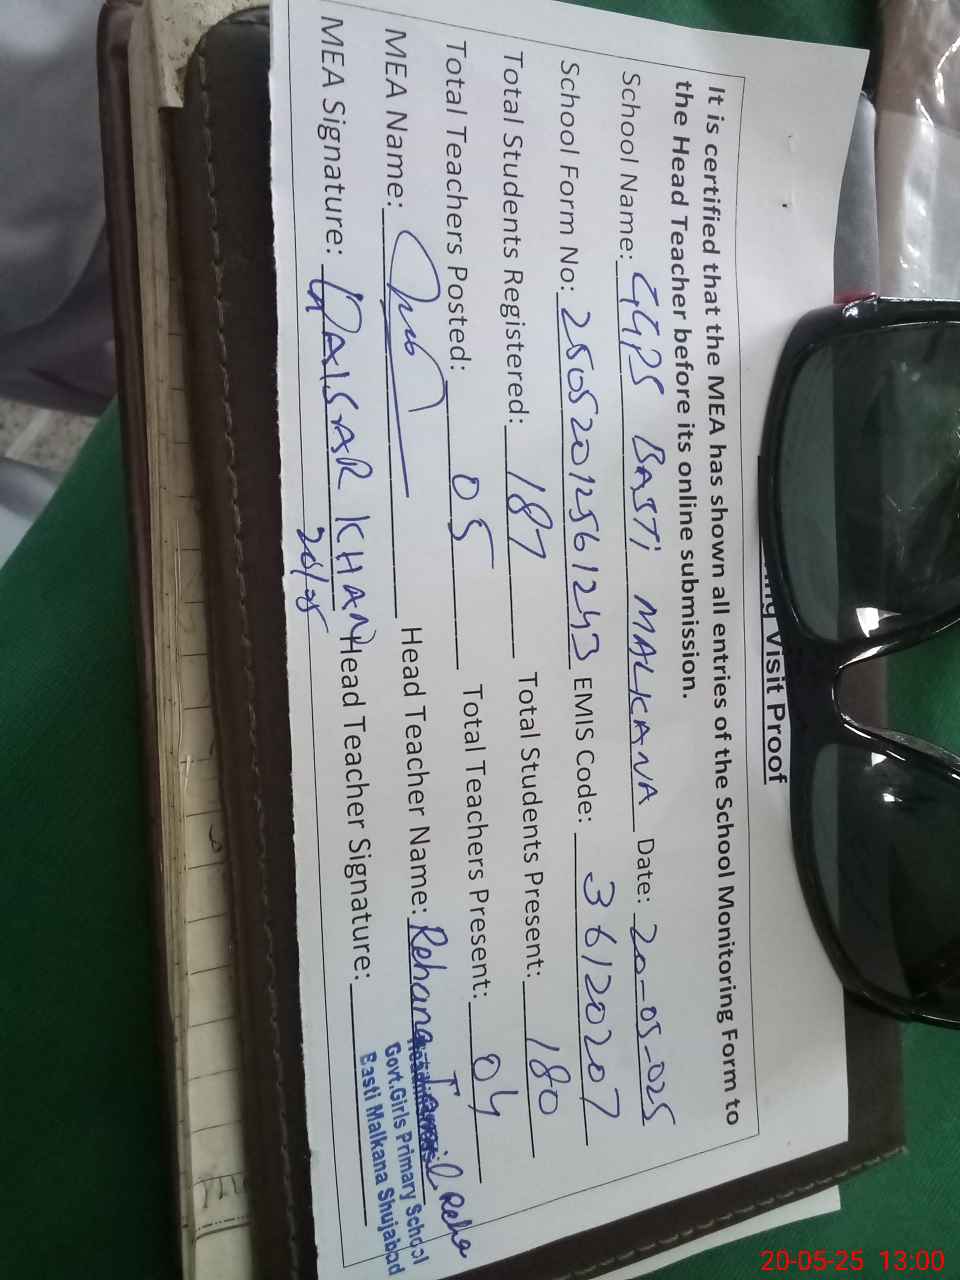 ng Visit Proof
It is certified that the MEA has shown all entries of the School Monitoring Form to
the Head Teacher before its online submission.
School Name: GGPS BASTI MALKANA Date: 20-05-025
School Form No: 2505201256 1243 EMIS Code: 36120207
Total Students Registered: 187 Total Students Present: 180
Total Teachers Posted: 05 Total Teachers Present: 04
MEA Name: Head Teacher Name: Rehana
MEA Signature: QAISAR KHAN Head Teacher Signature:
20/05
Govt.Girls Primary School
Basti Malkana Shujabad
20-05-25 13:00